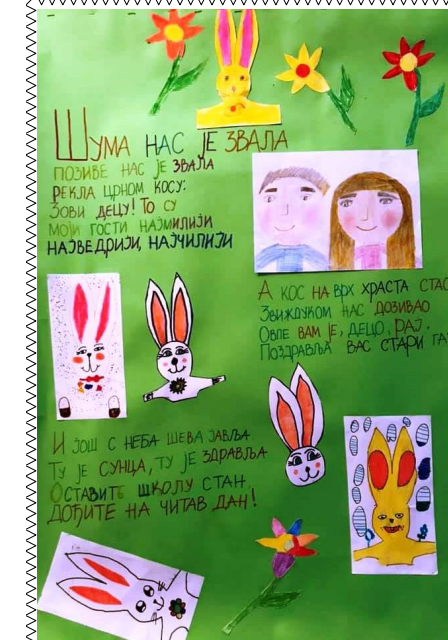 Шума нас је звала
Позиве нас је звала
Рекла црном косу:
Зови децу! То су
моји гости најмилији
најведрији, најчилији
А кос на врх храста
Звиждуком нас дозивао
Овде вам је, децо, рај.
Поздравља вас стари
И још с неба шева јавља
Ту је сунца, ту је здравља
Оставите школу стан,
дођите на читав дан!